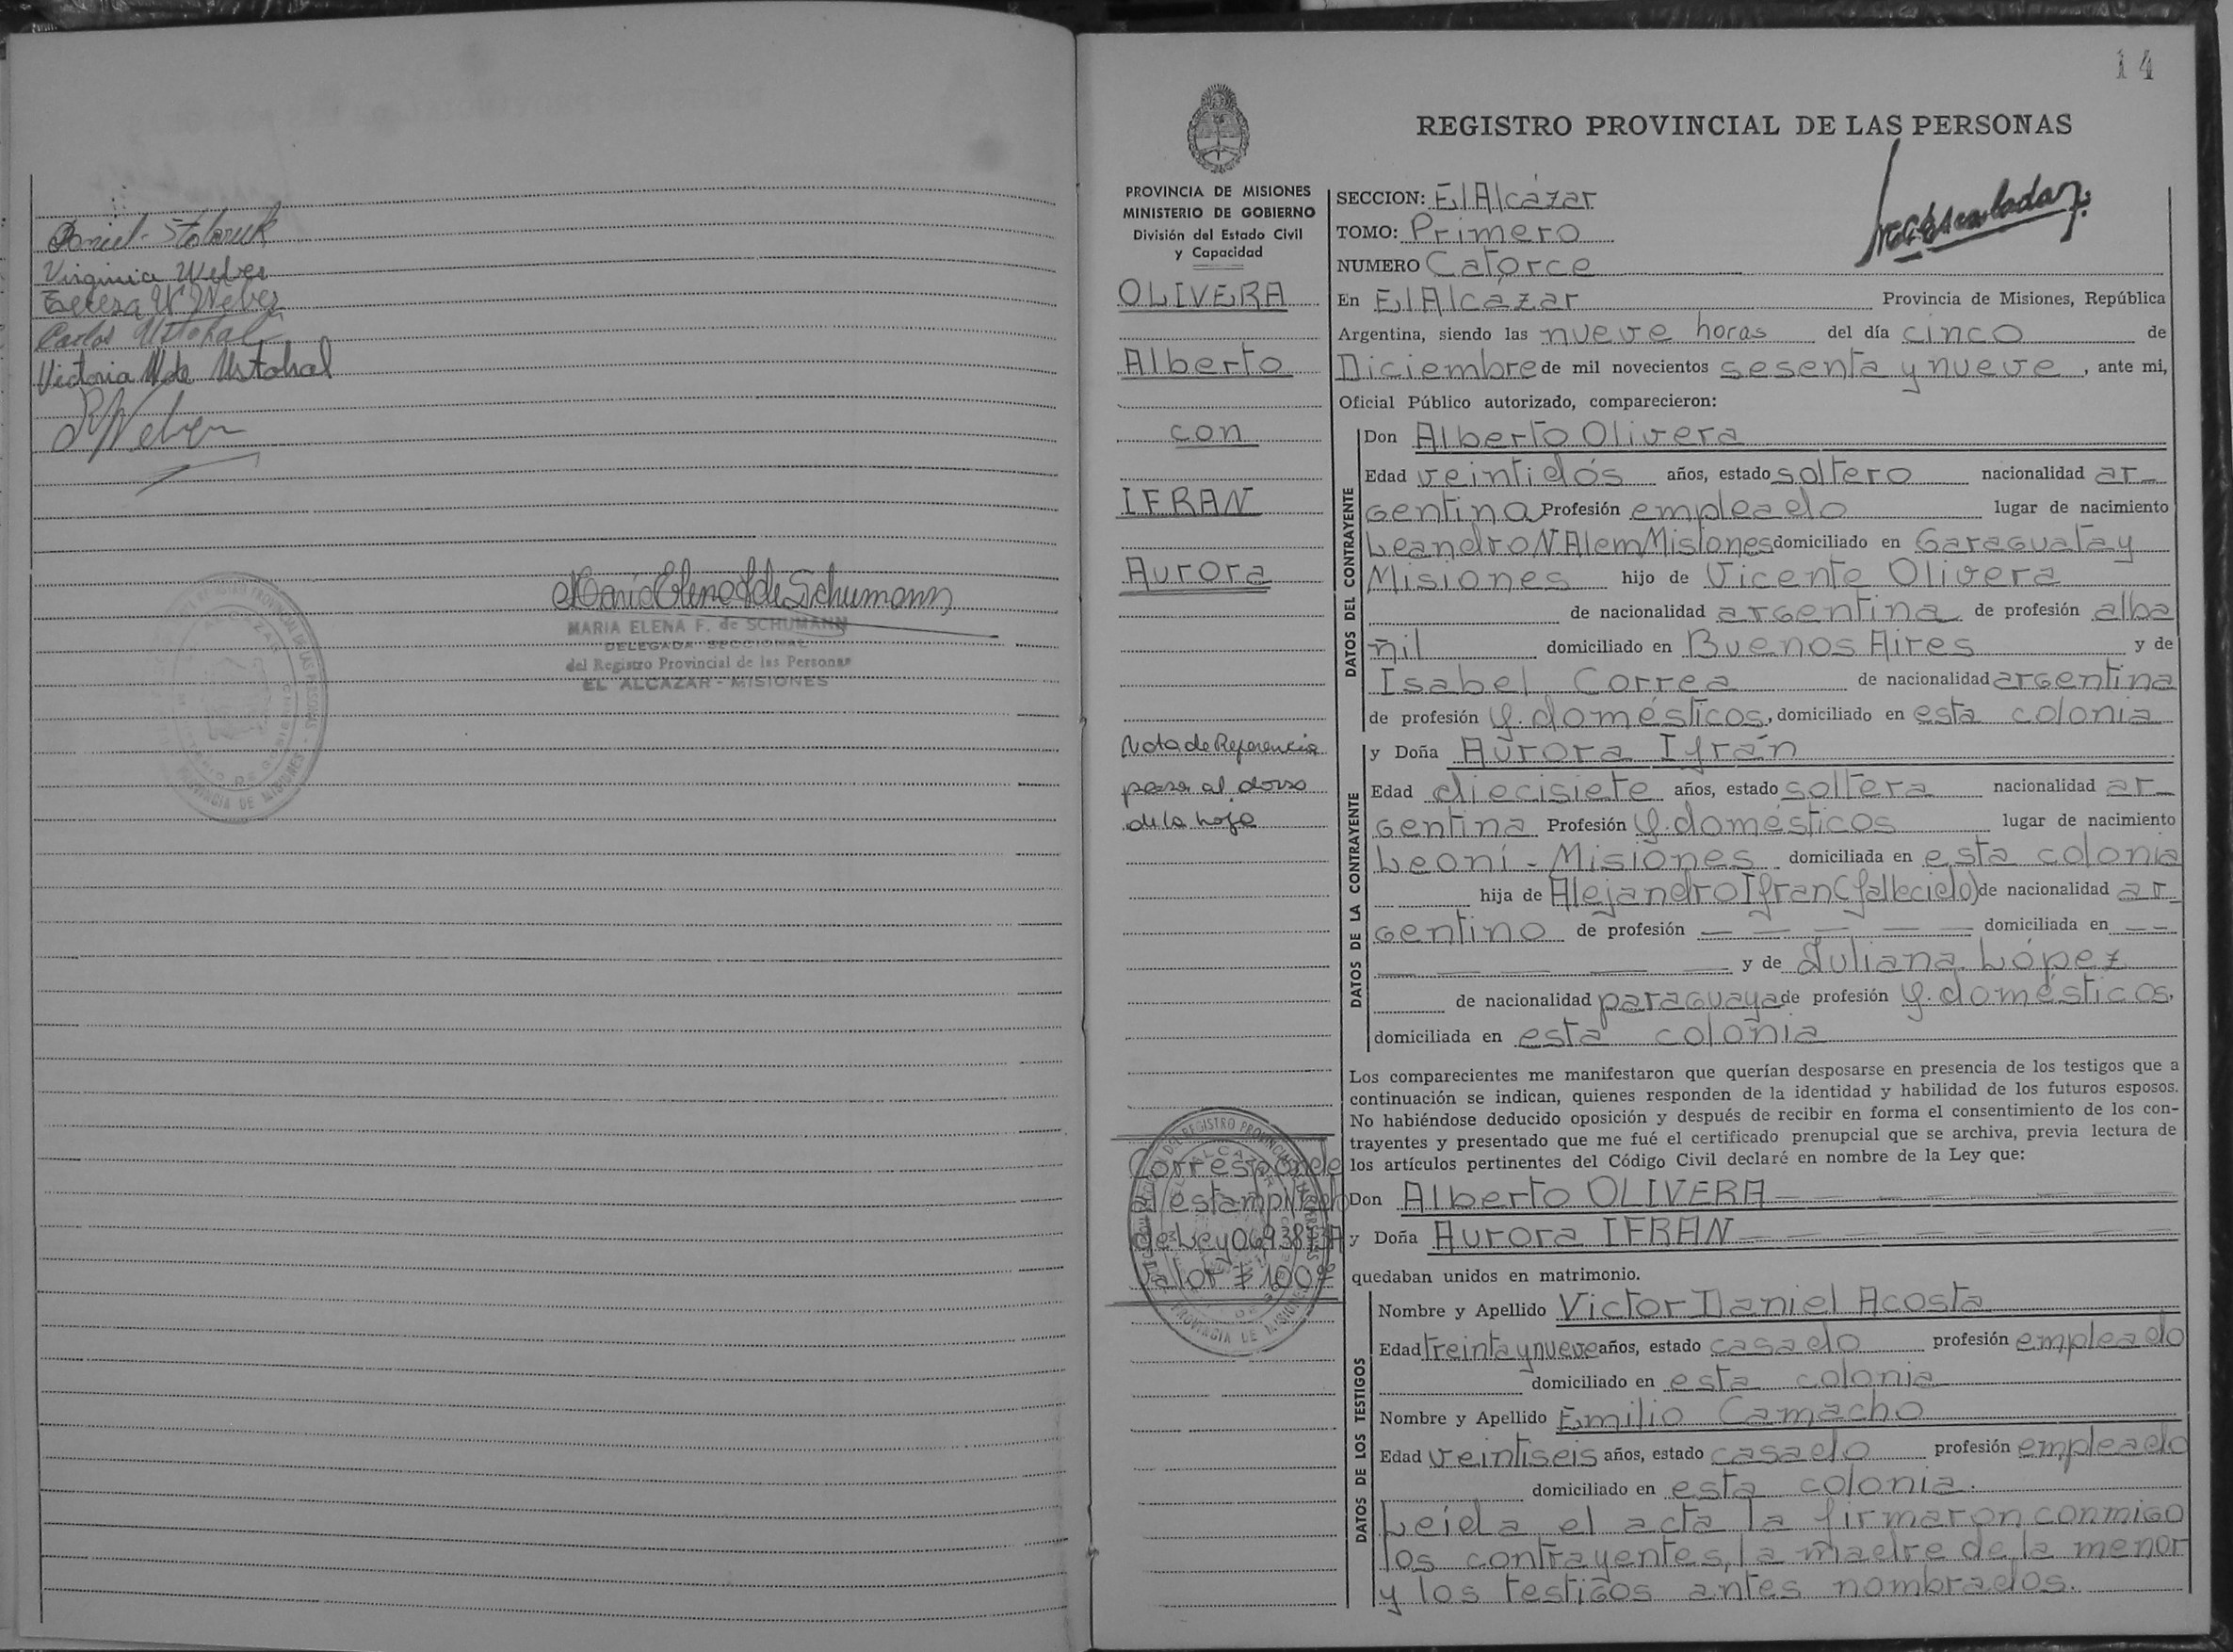 Daniel Stolaruk
Virginia Weber
Teresa W Weber
Carlos Ustohal
Victoria W de Ustohal
Weber
María Elena F de Schumann
MARIA ELENA F. de SCHUMANN
DELEGADA SECCIONAL
del Registro Provincial de las Personas
EL ALCAZAR - MISIONES
14
REGISTRO PROVINCIAL DE LAS PERSONAS
PROVINCIA DE MISIONES
MINISTERIO DE GOBIERNO
División del Estado Civil
y Capacidad
OLIVERA
Alberto
con
IFRAN
Aurora
Nota de Referencia
pasa al dorso
de la hoja
Corresponde
al estampillado
de Ley 0693873A
valor $ 100
SECCION: El Alcázar
TOMO: Primero
NUMERO Catorce
En El Alcázar Provincia de Misiones, República
Argentina, siendo las nueve horas del día cinco de
Diciembre de mil novecientos sesenta y nueve, ante mi,
Oficial Público autorizado, comparecieron:
DATOS DEL CONTRAYENTE
Don Alberto Olivera
Edad veintidós años, estado soltero nacionalidad ar_
gentina Profesión empleado lugar de nacimiento
Leandro N Alem Misiones domiciliado en Garaguatay
Misiones hijo de Vicente Olivera
de nacionalidad argentina de profesión alba
ñil domiciliado en Buenos Aires y de
Isabel Correa de nacionalidad argentina
de profesión q. domésticos, domiciliado en esta colonia
DATOS DE LA CONTRAYENTE
y Doña Aurora Ifrán
Edad diecisiete años, estado soltera nacionalidad ar_
gentina Profesión q. domésticos lugar de nacimiento
Leoni - Misiones domiciliada en esta colonia
hija de Alejandro Ifran (fallecido) de nacionalidad ar_
gentino de profesión — — — — — domiciliada en — —
— — — — — y de Juliana López
de nacionalidad paraguaya de profesión q. domésticos,
domiciliada en esta colonia
Los comparecientes me manifestaron que querían desposarse en presencia de los testigos que a
continuación se indican, quienes responden de la identidad y habilidad de los futuros esposos.
No habiéndose deducido oposición y después de recibir en forma el consentimiento de los con-
trayentes y presentado que me fué el certificado prenupcial que se archiva, previa lectura de
los artículos pertinentes del Código Civil declaré en nombre de la Ley que:
Don Alberto OLIVERA
y Doña Aurora IFRAN
quedaban unidos en matrimonio.
DATOS DE LOS TESTIGOS
Nombre y Apellido Victor Daniel Acosta
Edad treinta y nueve años, estado casado profesión empleado
domiciliado en esta colonia
Nombre y Apellido Emilio Camacho
Edad veintiseis años, estado casado profesión empleado
domiciliado en esta colonia.
Leída el acta la firmaron conmigo
los contrayentes, la madre de la menor
y los testigos antes nombrados.